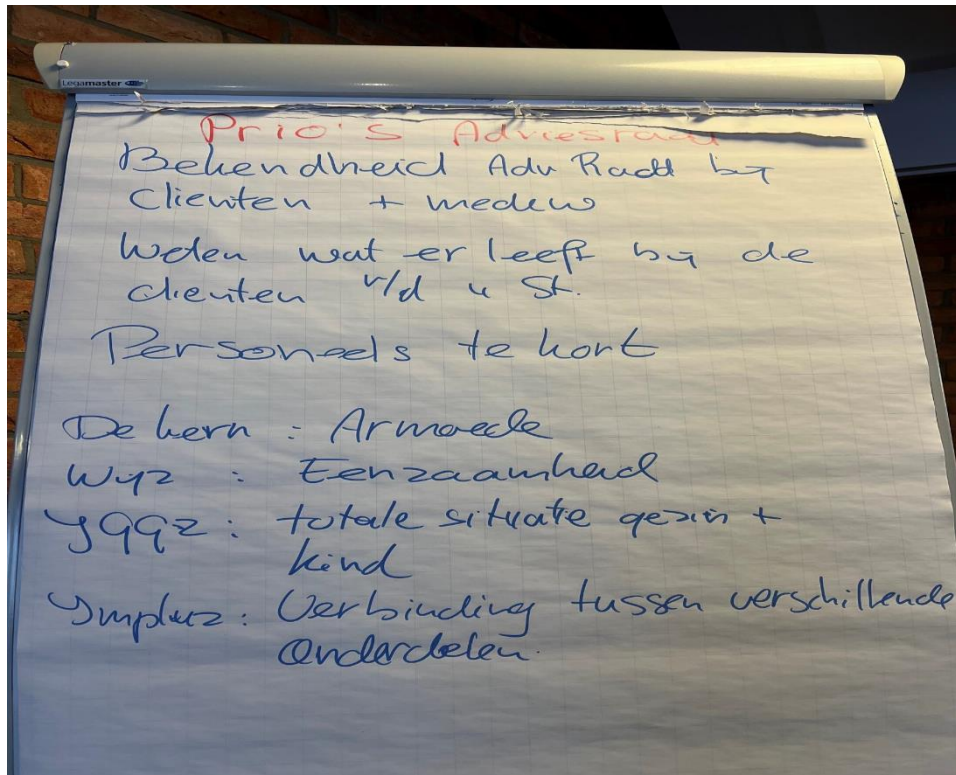 Legamaster
Prio's Adviesraad
Bekendheid Adv Raad bij
Clienten + medew
Weten wat er leeft bij de
clienten v/d 4 St.
Personeels te kort
De kern : Armoede
Wijz : Eenzaamheid
JGGZ : totale situatie gezin +
kind
Impluz : Verbinding tussen verschillende
Onderdelen.